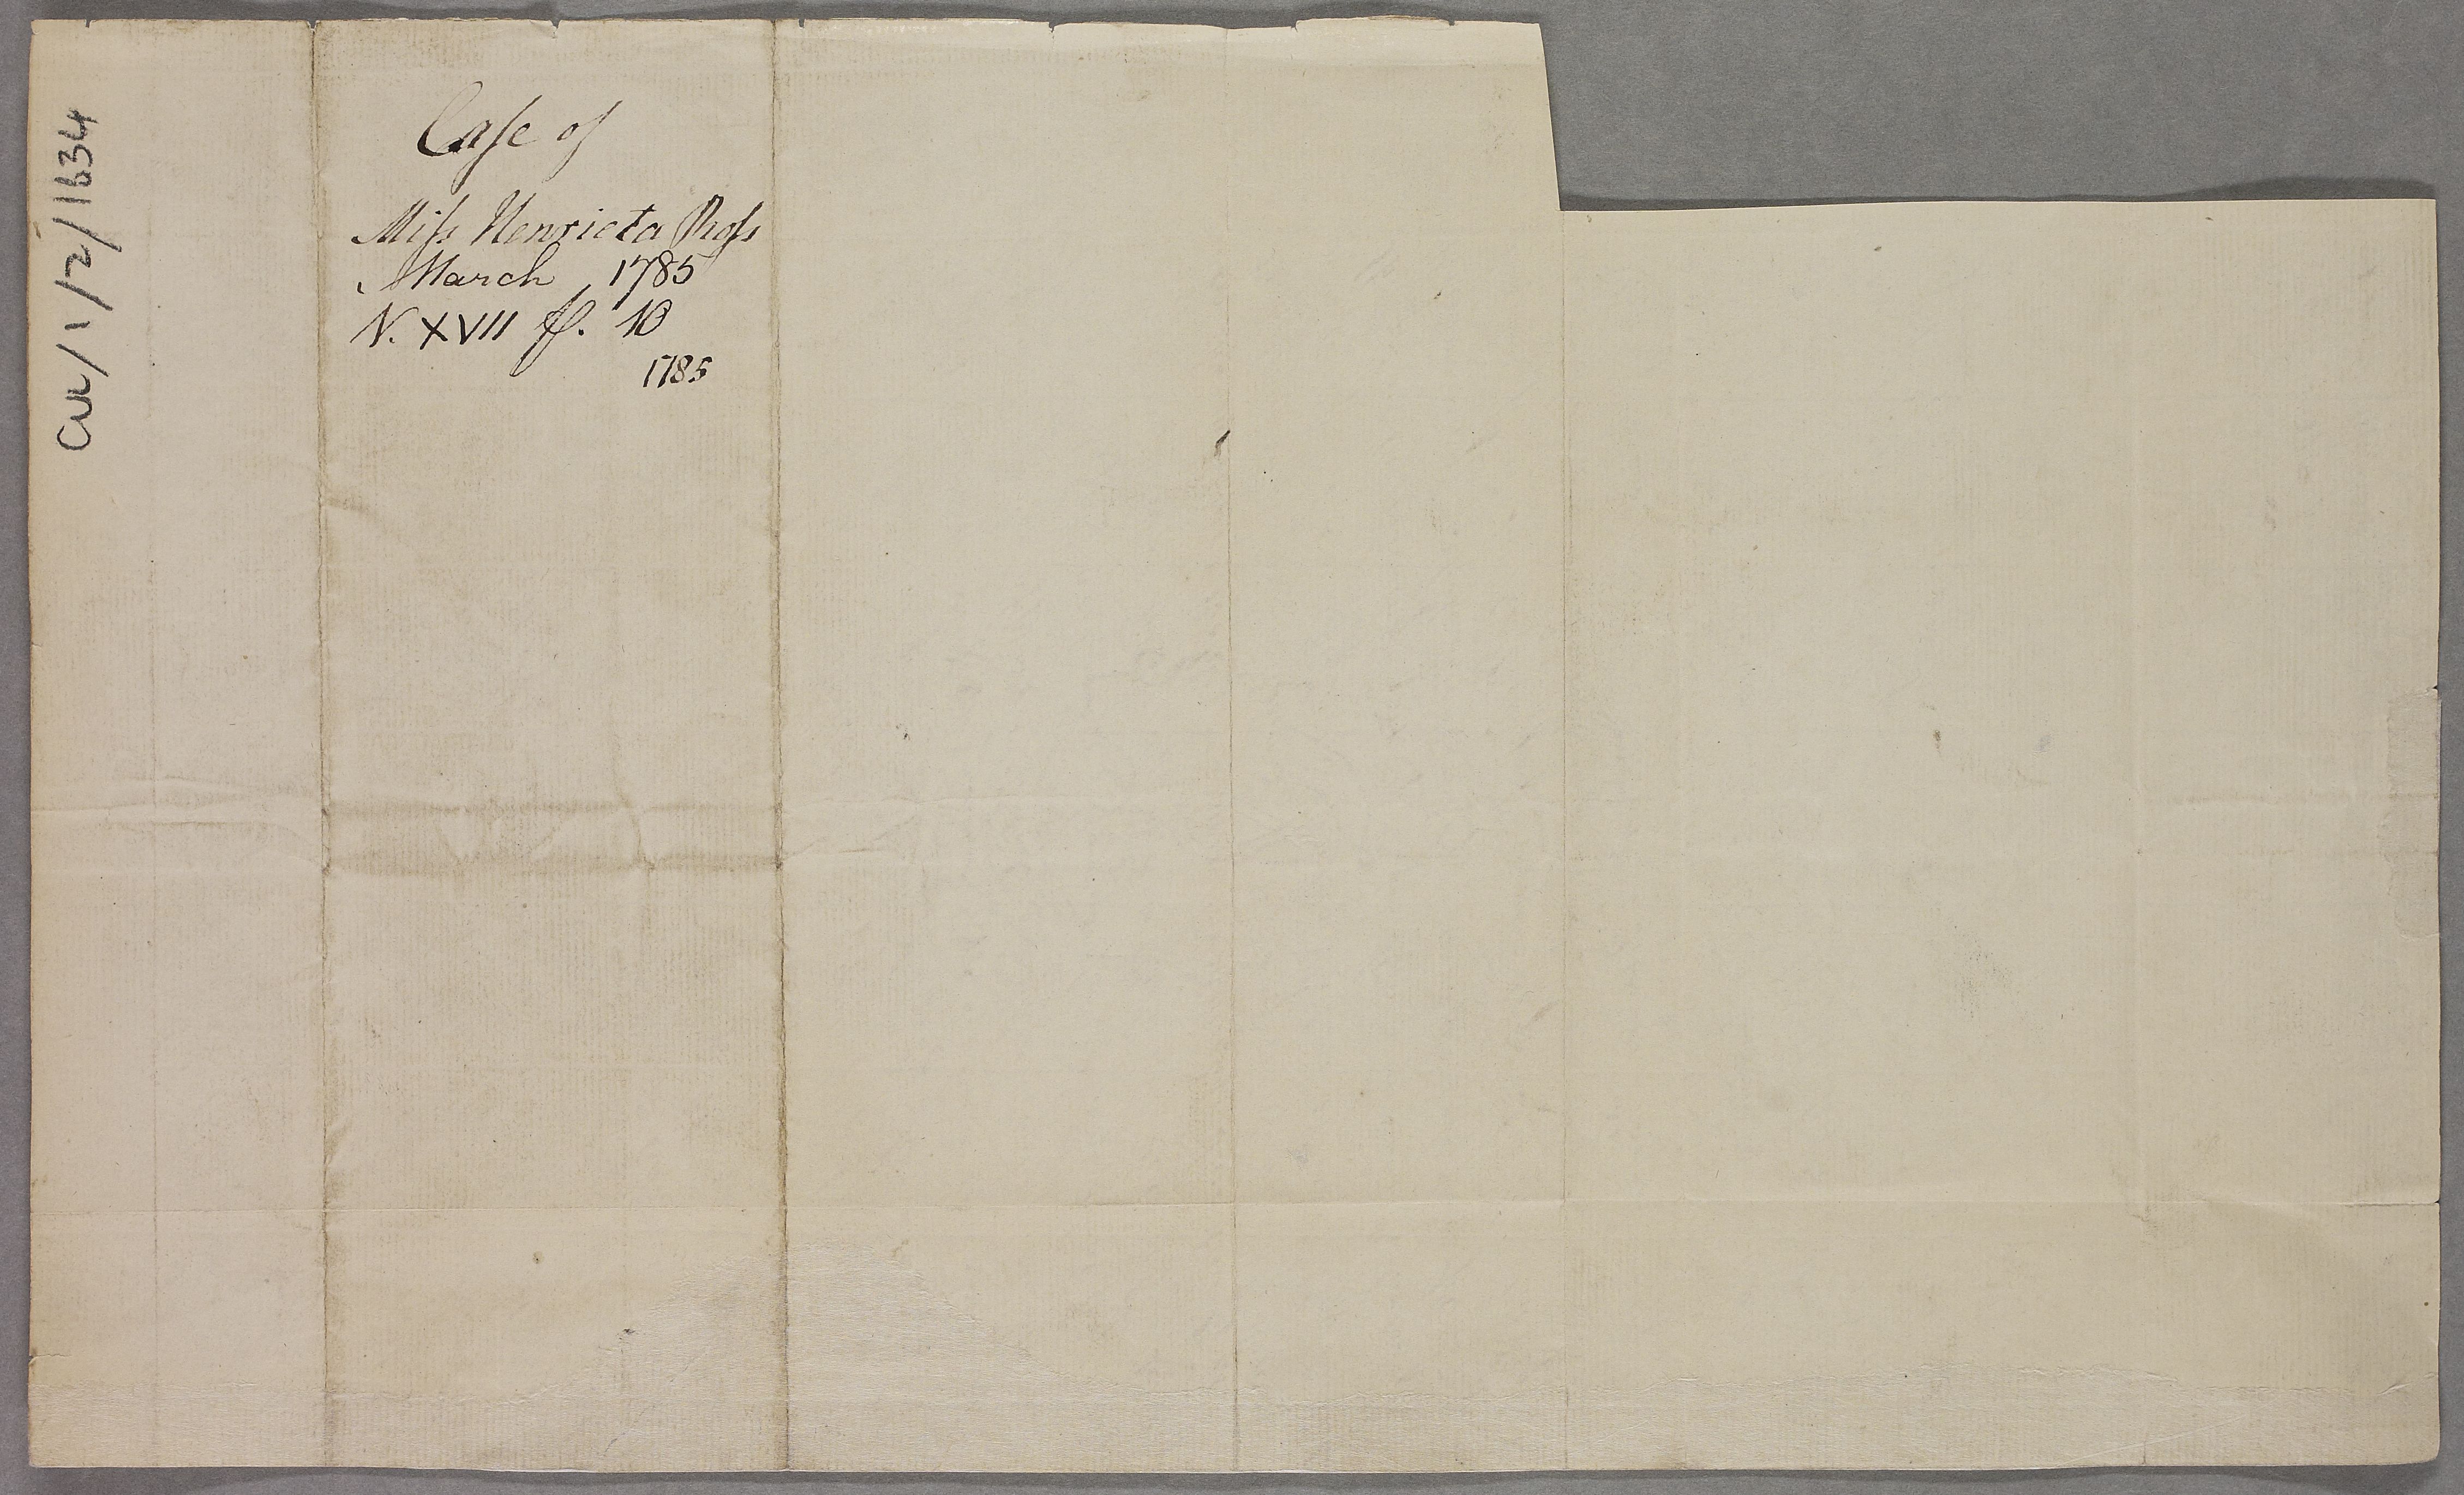 CUL/1/2/1634
Case of
Miss Henrieta Ross
March 1785
N. XVII p. 10
1785